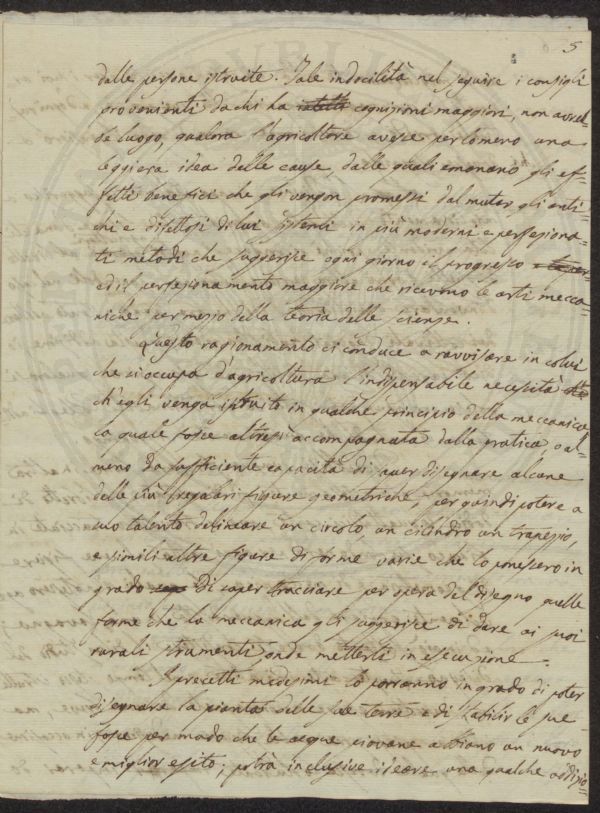 5
dalle persone istruite. Tale indocilità nel seguire i consigli
provenienti da chi ha cognizioni maggiori, non avreb-
be luogo, qualora l'agricoltore avesse perlomeno una
leggiera idea delle cause, dalle quali emanano gli ef-
fetti benefici che gli vengon promessi dal mutar gli anti-
chi e difettosi di lui sistemi in più moderni e perfeziona-
ti metodi che suggerisce ogni giorno il progresso
ed il perfezionamento maggiore che ricevono le arti mecca-
niche per mezzo della teoria delle scienze.
Questo ragionamento ci conduce a ravvisare in colui
che si occupa d'agricoltura l'indispensabile necessità
ch'egli venga istruito in qualche principio della meccanica
la quale fosse altresì accompagnata dalla pratica, o al-
meno da sufficiente capacità di saper disegnare alcune
delle più figure geometriche, per quindi potere a
suo talento delineare un circolo, un cilindro un trapezio,
e simili altre figure di forme varie che lo ponessero in
grado di saper tracciare per opera del disegno, quelle
forme che la meccanica gli suggerisce di dare ai suoi
rurali strumenti, onde metterli in esecuzione.
I precetti medesimi lo porranno in grado di poter
disegnare la pianta delle sue terre e di stabilir le sue
fosse per modo che le acque piovane abbiano un nuovo
e miglior esito; potrà inclusive ideare una qualche